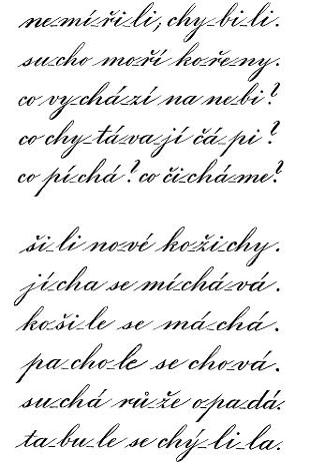 ne-mí-ři-li, chy-bi-li.
su-cho mo-ří ko-ře-ny.
co vy-chá-zí na ne-bi?
co chy-tá-va-jí čá-pi?
co pí-chá? co či-chá-me?
ši-li no-vé ko-ži-chy.
jí-cha se mí-chá-vá.
ko-ši-le se má-chá.
pa-cho-le se cho-vá.
su-chá rů-že o-pa-dá.
ta-bu-le se chý-li-la.